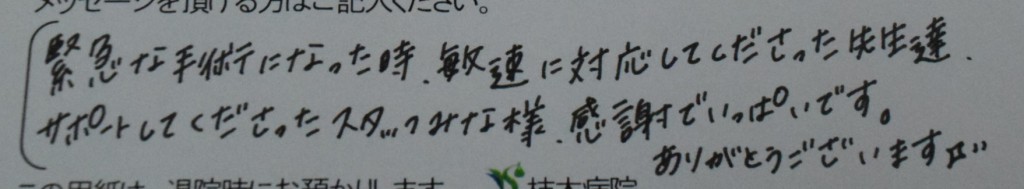 メッセージを頂ける方はご記入ください。
緊急な手術になった時、敏速に対応してくださった先生達、
サポートしてくださったスタッフみな様、感謝でいっぱいです。
ありがとうございます
この用紙は、退院時にお預かりします
病院